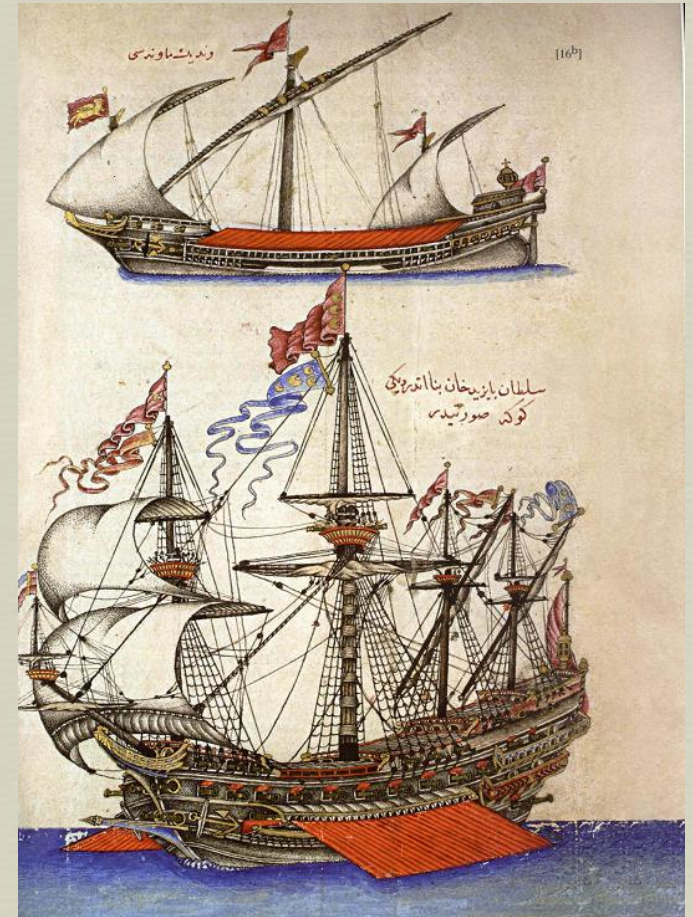 وندیك ماونه سی
[16b]
سلطان بایزید خان بنا اتدردیکی
کوکه صورتیدر